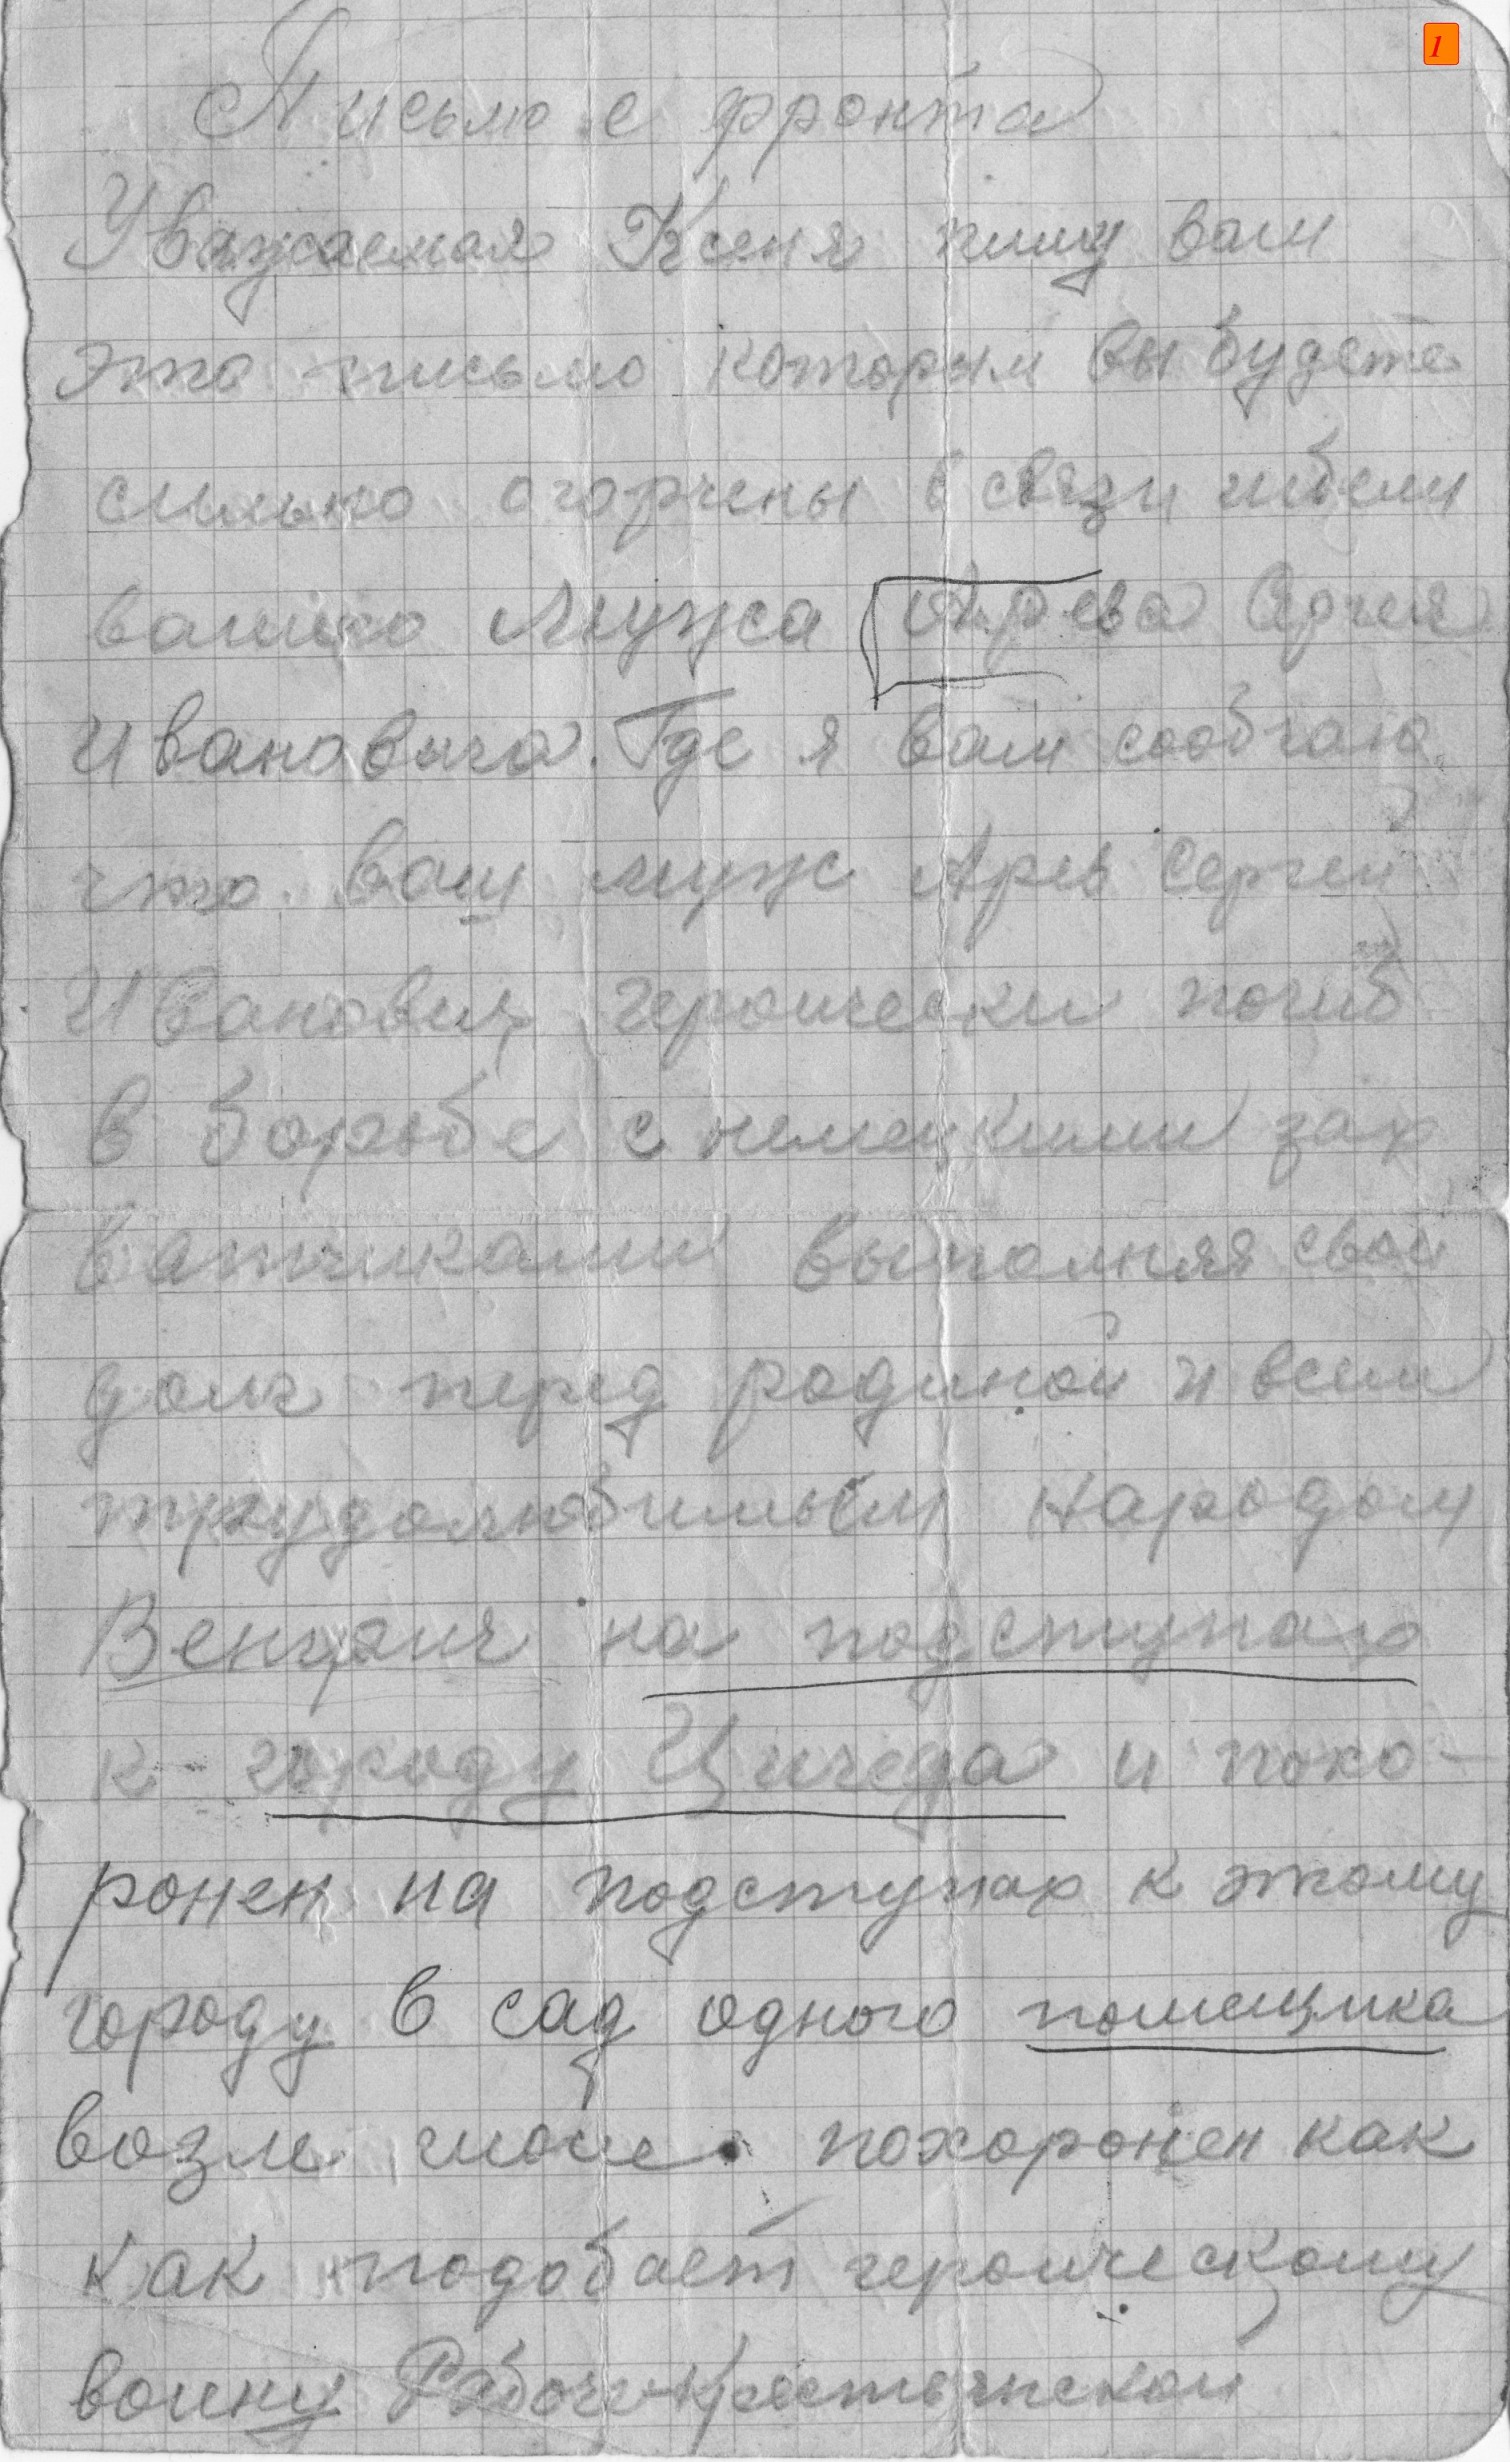 1
Письмо с фронта
Уважаемая Ксеня пишу вам
это письмо которым вы будете
сильно огорчены в связи гибели
вашего мужа Арева
Ивановича. Где я вам сообчаю
что ваш муж Арев Сергей
Иванович героически погиб
в борьбе с немецкими зах
ватчиками выполняя свой
долг перед родиной и всем
трудолюбимым народом
Венгрии на подступах
к городу Цигеда и похо-
ронен на подступах к этому
городу в сад одного помещика
возле похоронен как
как подобает героическому
воину Рабоче-Крестьянской